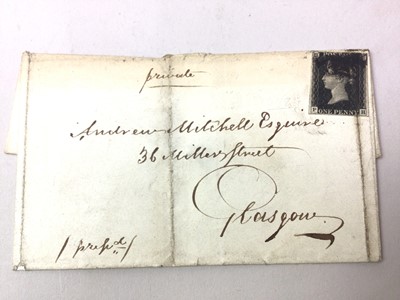 private
POSTAGE
ONE PENNY
Andrew Mitchell Esquire
36 Miller Street
Glasgow
/ prepd /